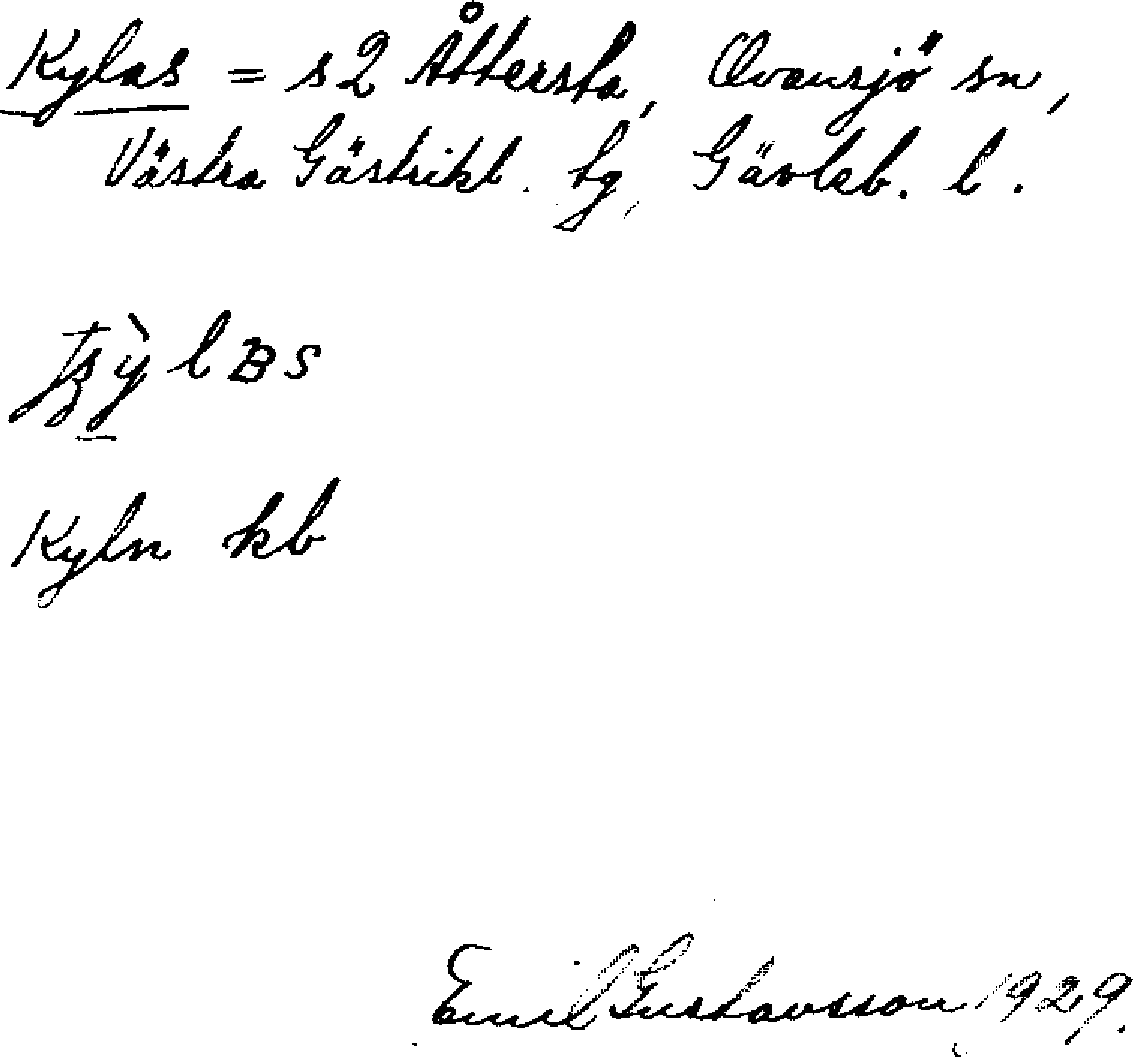 Kylas = s2 Åttersta, Ovansjö sn,
Västra Gästrikl. tg, Gävleb. l.
Kyln kb
Emil Gustavsson 1929.